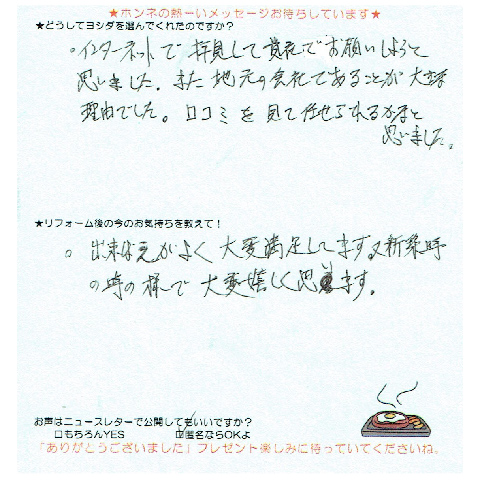 ★ホンネの熱ーいメッセージお待ちしています★
★どうしてヨシダを選んでくれたのですか?
。インターネットで拝見して貴社でお願いしようと
思いました。また地元の会社であることが大きな
理由でした。口コミを見て任せられるかなと
思いました。
★リフォーム後の今のお気持ちを教えて!
。出来ばえがよく大変満足してます。又新築時
の時の様で大変嬉しく思います。
お声はニュースレターで公開してもいいですか?
□もちろんYES ☑匿名ならOKよ
「ありがとうございました」プレゼント楽しみに待っていてくださいね。